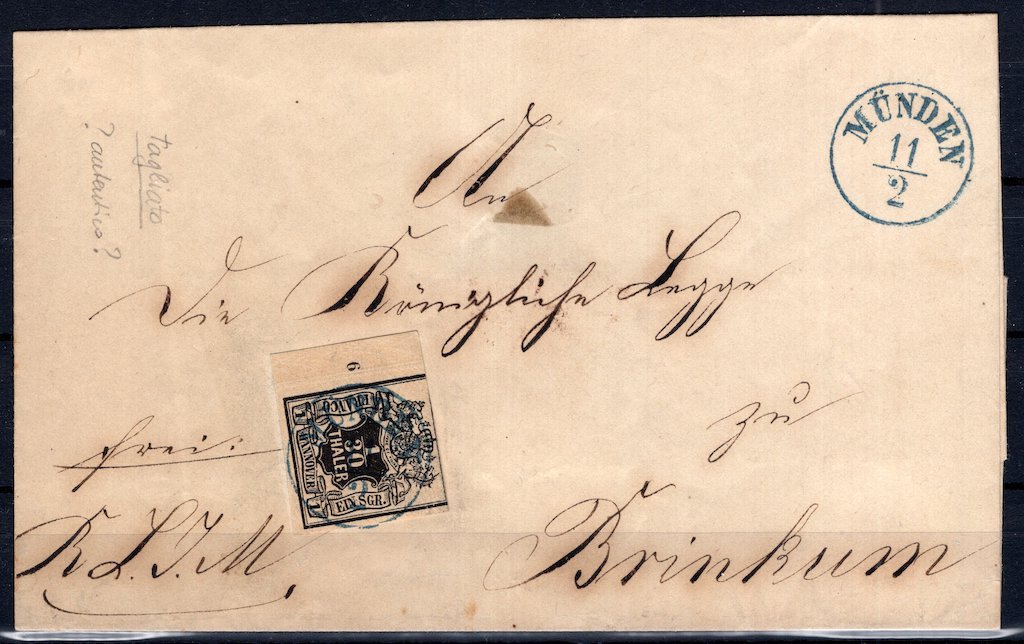 MÜNDEN
11
2
tagliato
? autentico?
An
Die Königliche Legge
zu
Brinkum
frei:
K L. J. M.
6
FRANCO
1
30
THALER
HANNOVER
EIN SGR.
1
1